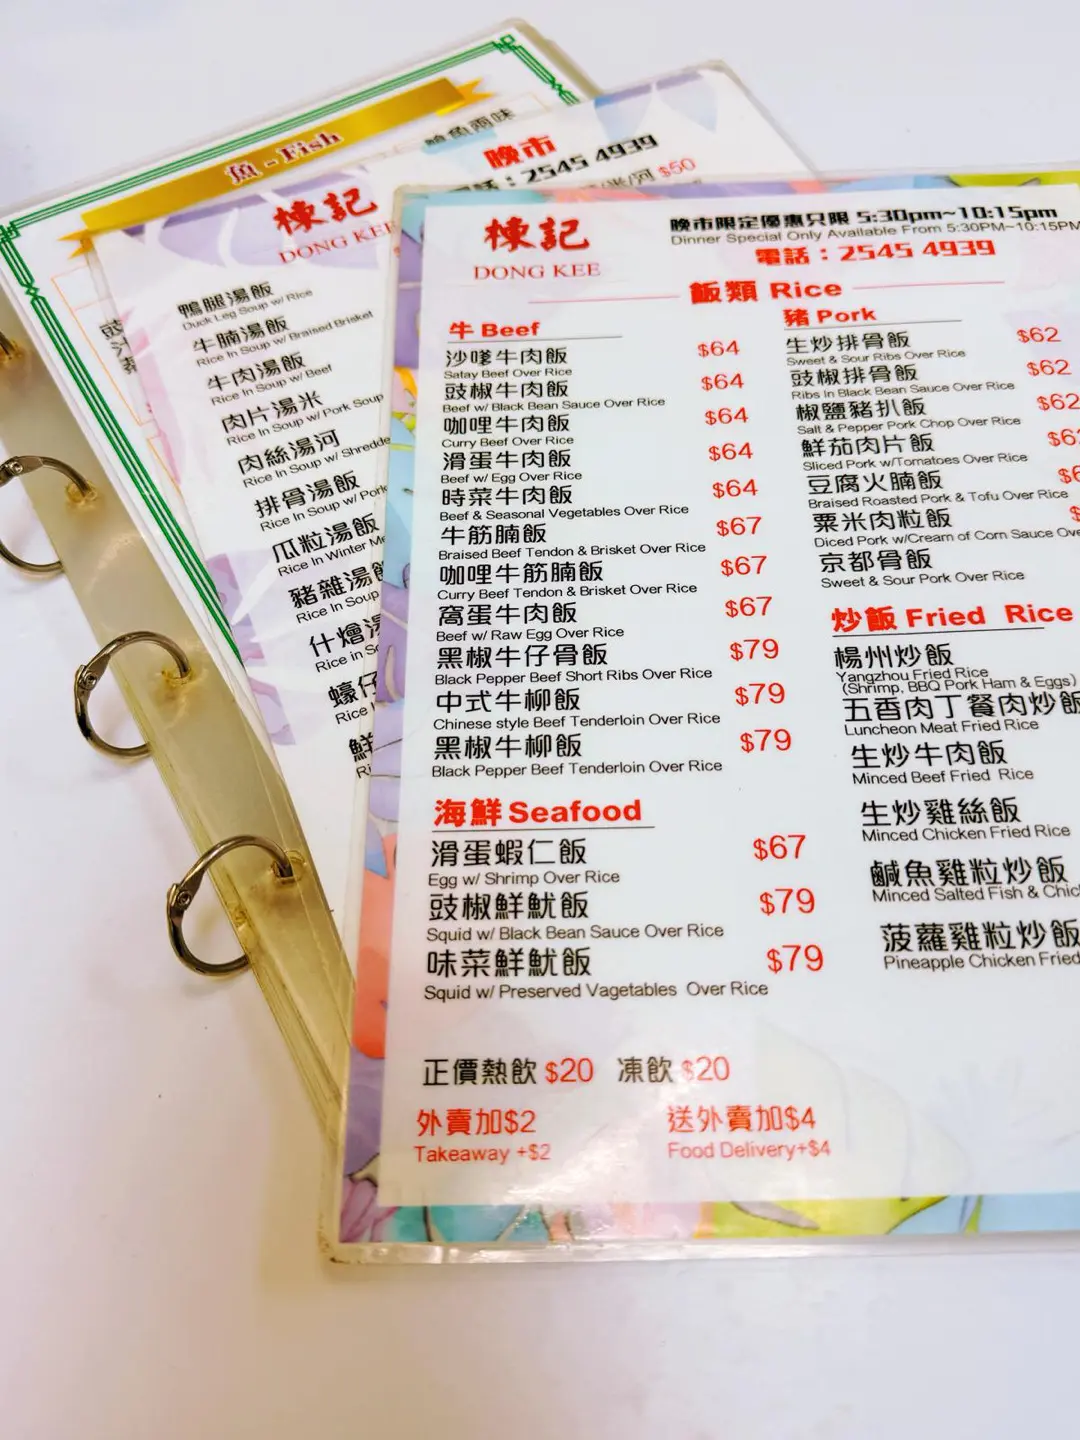 魚 - Fish
鯪魚兩味
晚市
電話：2545 4939
$50
棟記
DONG KEE
鴨腿湯飯
Duck Leg Soup w/ Rice
牛腩湯飯
Rice In Soup w/ Braised Brisket
牛肉湯飯
Rice In Soup w/ Beef
肉片湯米
Rice In Soup w/ Pork Soup
肉絲湯河
Rice In Soup w/ Shredde
排骨湯飯
Rice In Soup w/ Pork
瓜粒湯飯
Rice In Winter Me
豬雜湯飯
Rice In Soup
什燴湯
Rice in So
蠔仔
Rice I
鮮
Ri
棟記
DONG KEE
晚市限定優惠只限 5:30pm~10:15pm
Dinner Special Only Available From 5:30PM~10:15PM
電話：2545 4939
飯類 Rice
牛 Beef
沙嗲牛肉飯 $64
Satay Beef Over Rice
豉椒牛肉飯 $64
Beef w/ Black Bean Sauce Over Rice
咖哩牛肉飯 $64
Curry Beef Over Rice
滑蛋牛肉飯 $64
Beef w/ Egg Over Rice
時菜牛肉飯 $64
Beef & Seasonal Vegetables Over Rice
牛筋腩飯 $67
Braised Beef Tendon & Brisket Over Rice
咖哩牛筋腩飯 $67
Curry Beef Tendon & Brisket Over Rice
窩蛋牛肉飯 $67
Beef w/ Raw Egg Over Rice
黑椒牛仔骨飯 $79
Black Pepper Beef Short Ribs Over Rice
中式牛柳飯 $79
Chinese style Beef Tenderloin Over Rice
黑椒牛柳飯 $79
Black Pepper Beef Tenderloin Over Rice
海鮮 Seafood
滑蛋蝦仁飯 $67
Egg w/ Shrimp Over Rice
豉椒鮮魷飯 $79
Squid w/ Black Bean Sauce Over Rice
味菜鮮魷飯 $79
Squid w/ Preserved Vagetables Over Rice
豬 Pork
生炒排骨飯 $62
Sweet & Sour Ribs Over Rice
豉椒排骨飯 $62
Ribs In Black Bean Sauce Over Rice
椒鹽豬扒飯 $62
Salt & Pepper Pork Chop Over Rice
鮮茄肉片飯 $62
Sliced Pork w/Tomatoes Over Rice
豆腐火腩飯 $6
Braised Roasted Pork & Tofu Over Rice
粟米肉粒飯 $
Diced Pork w/Cream of Corn Sauce Ove
京都骨飯
Sweet & Sour Pork Over Rice
炒飯 Fried Rice
楊州炒飯
Yangzhou Fried Rice
(Shrimp, BBQ Pork Ham & Eggs)
五香肉丁餐肉炒飯
Luncheon Meat Fried Rice
生炒牛肉飯
Minced Beef Fried Rice
生炒雞絲飯
Minced Chicken Fried Rice
鹹魚雞粒炒飯
Minced Salted Fish & Chic
菠蘿雞粒炒飯
Pineapple Chicken Fried
正價熱飲 $20 凍飲 $20
外賣加$2 送外賣加$4
Takeaway +$2 Food Delivery+$4